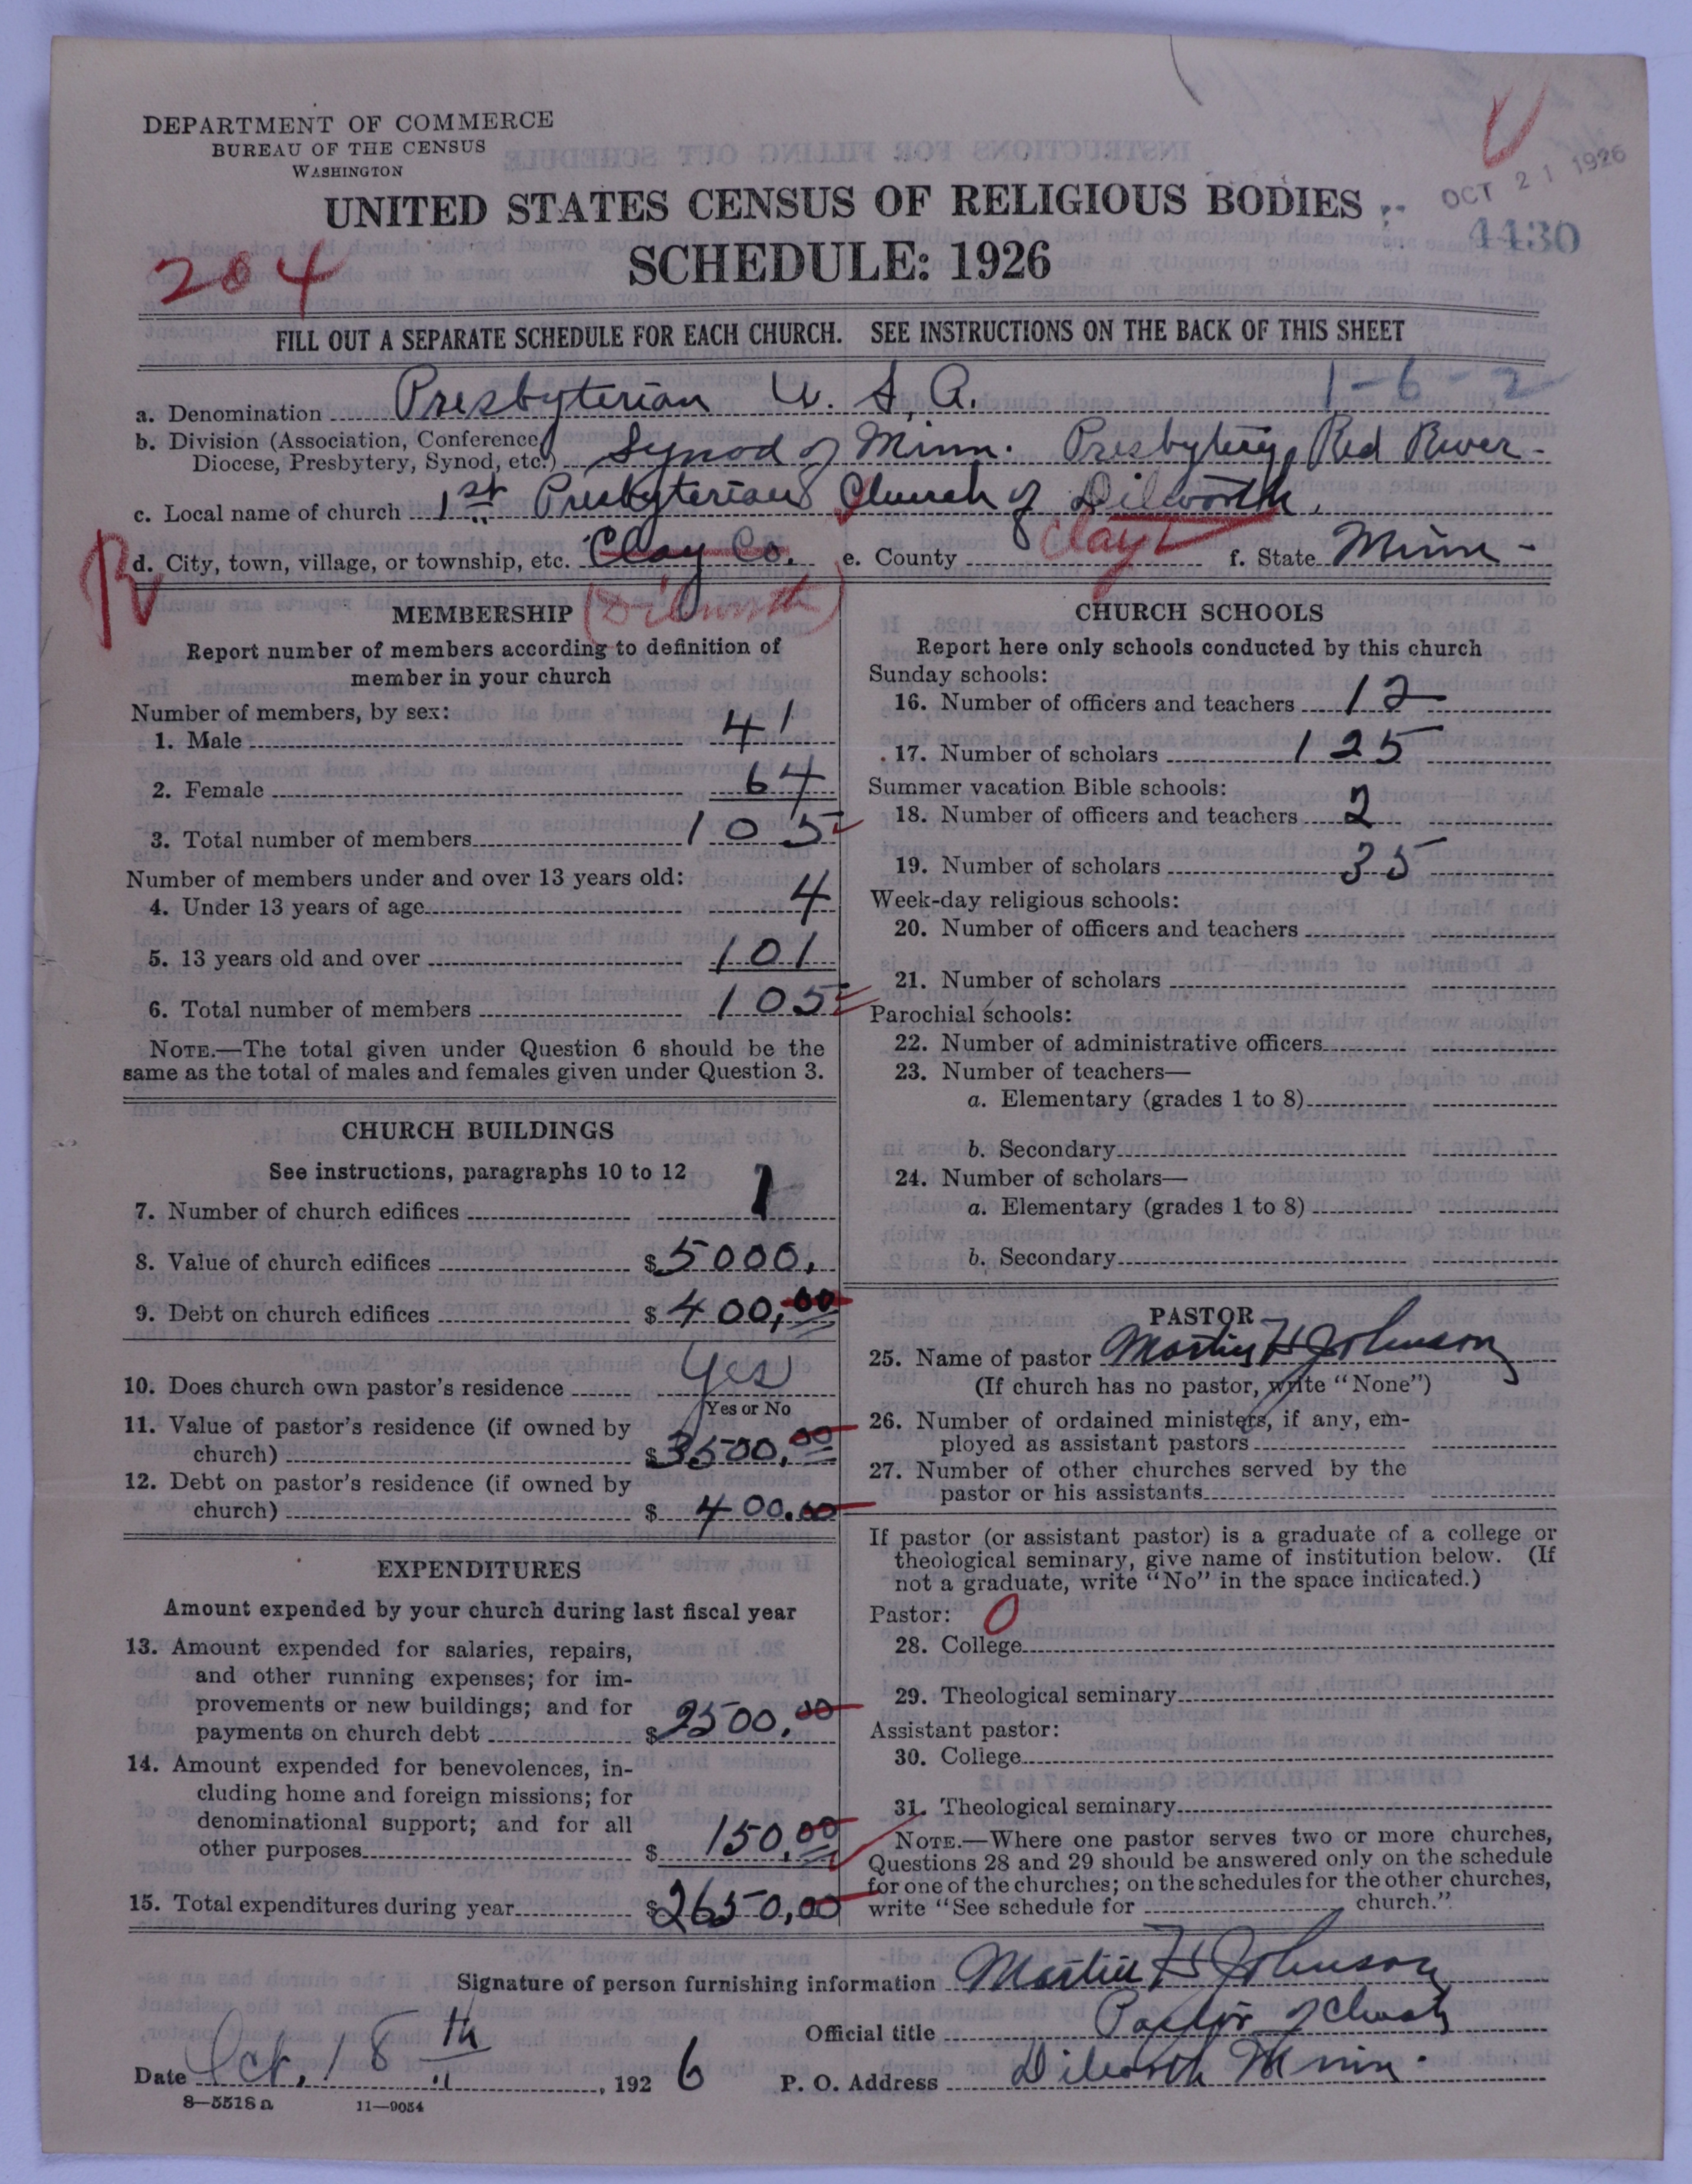 DEPARTMENT OF COMMERCE
BUREAU OF THE CENSUS
WASHINGTON
UNITED STATES CENSUS OF RELIGIOUS BODIES
OCT 21 1926
4430
SCHEDULE: 1926
204
FILL OUT A SEPARATE SCHEDULE FOR EACH CHURCH. SEE INSTRUCTIONS ON THE BACK OF THIS SHEET
1-6-2
a. Denomination Presbyterian U. S. A.
b. Division (Association, Conference,
Diocese, Presbytery, Synod, etc.) Synod of Minn. Presbytery, Red River-
c. Local name of church 1st Presbyterian Church of Dilworth,
d. City, town, village, or township, etc. Clay Co. e. County Clay f. State Minn-
(Dilworth)
MEMBERSHIP
Report number of members according to definition of
member in your church
Number of members, by sex:
1. Male 41
2. Female 64
3. Total number of members 105
Number of members under and over 13 years old:
4. Under 13 years of age 4
5. 13 years old and over 101
6. Total number of members 105
NOTE.—The total given under Question 6 should be the
same as the total of males and females given under Question 3.
CHURCH BUILDINGS
See instructions, paragraphs 10 to 12
7. Number of church edifices 1
8. Value of church edifices $5000.
9. Debt on church edifices $400.00
10. Does church own pastor's residence Yes
Yes or No
11. Value of pastor's residence (if owned by
church) $3500.00
12. Debt on pastor's residence (if owned by
church) $400.00
EXPENDITURES
Amount expended by your church during last fiscal year
13. Amount expended for salaries, repairs,
and other running expenses; for im-
provements or new buildings; and for
payments on church debt $2500.00
14. Amount expended for benevolences, in-
cluding home and foreign missions; for
denominational support; and for all
other purposes $150.00
15. Total expenditures during year $2650.00
CHURCH SCHOOLS
Report here only schools conducted by this church
Sunday schools:
16. Number of officers and teachers 12
17. Number of scholars 125
Summer vacation Bible schools:
18. Number of officers and teachers 2
19. Number of scholars 35
Week-day religious schools:
20. Number of officers and teachers
21. Number of scholars
Parochial schools:
22. Number of administrative officers
23. Number of teachers—
a. Elementary (grades 1 to 8)
b. Secondary
24. Number of scholars—
a. Elementary (grades 1 to 8)
b. Secondary
PASTOR
25. Name of pastor Martin H Johnson
(If church has no pastor, write "None")
26. Number of ordained ministers, if any, em-
ployed as assistant pastors
27. Number of other churches served by the
pastor or his assistants
If pastor (or assistant pastor) is a graduate of a college or
theological seminary, give name of institution below. (If
not a graduate, write "No" in the space indicated.)
Pastor: 0
28. College
29. Theological seminary
Assistant pastor:
30. College
31. Theological seminary
NOTE.—Where one pastor serves two or more churches,
Questions 28 and 29 should be answered only on the schedule
for one of the churches; on the schedules for the other churches,
write "See schedule for church."
Signature of person furnishing information Martin H Johnson
Official title Pastor of Church
Date Oct. 18th, 1926 P. O. Address Dilworth Minn.
8—5518a 11—9054